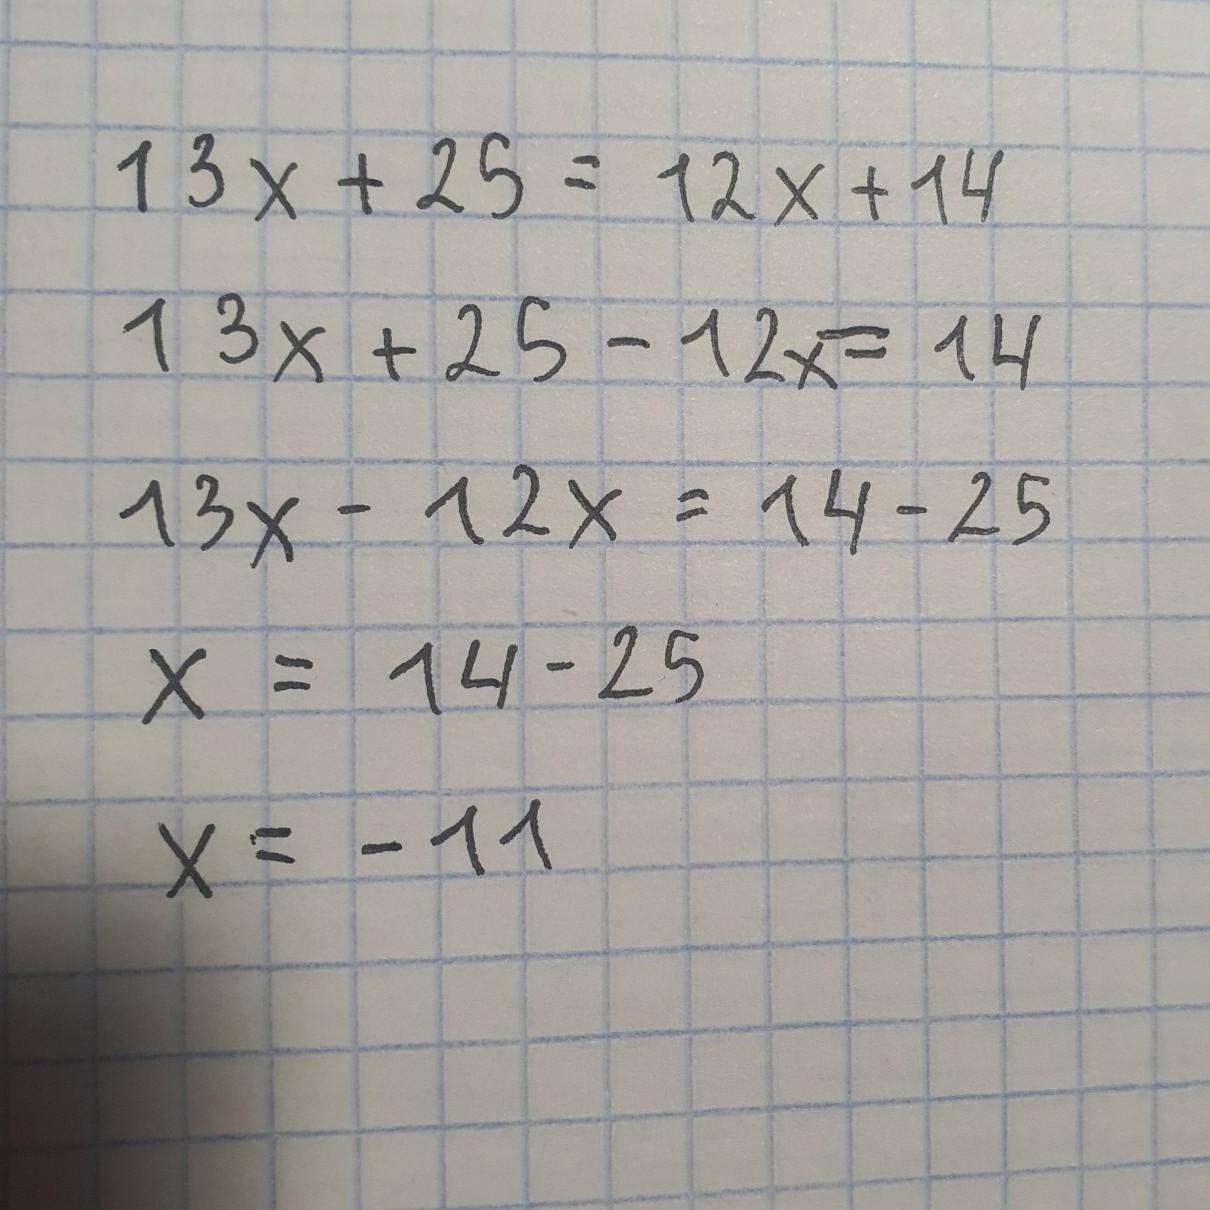 13x + 25 = 12x + 14
13x + 25 - 12x = 14
13x - 12x = 14 - 25
x = 14 - 25
x = - 11